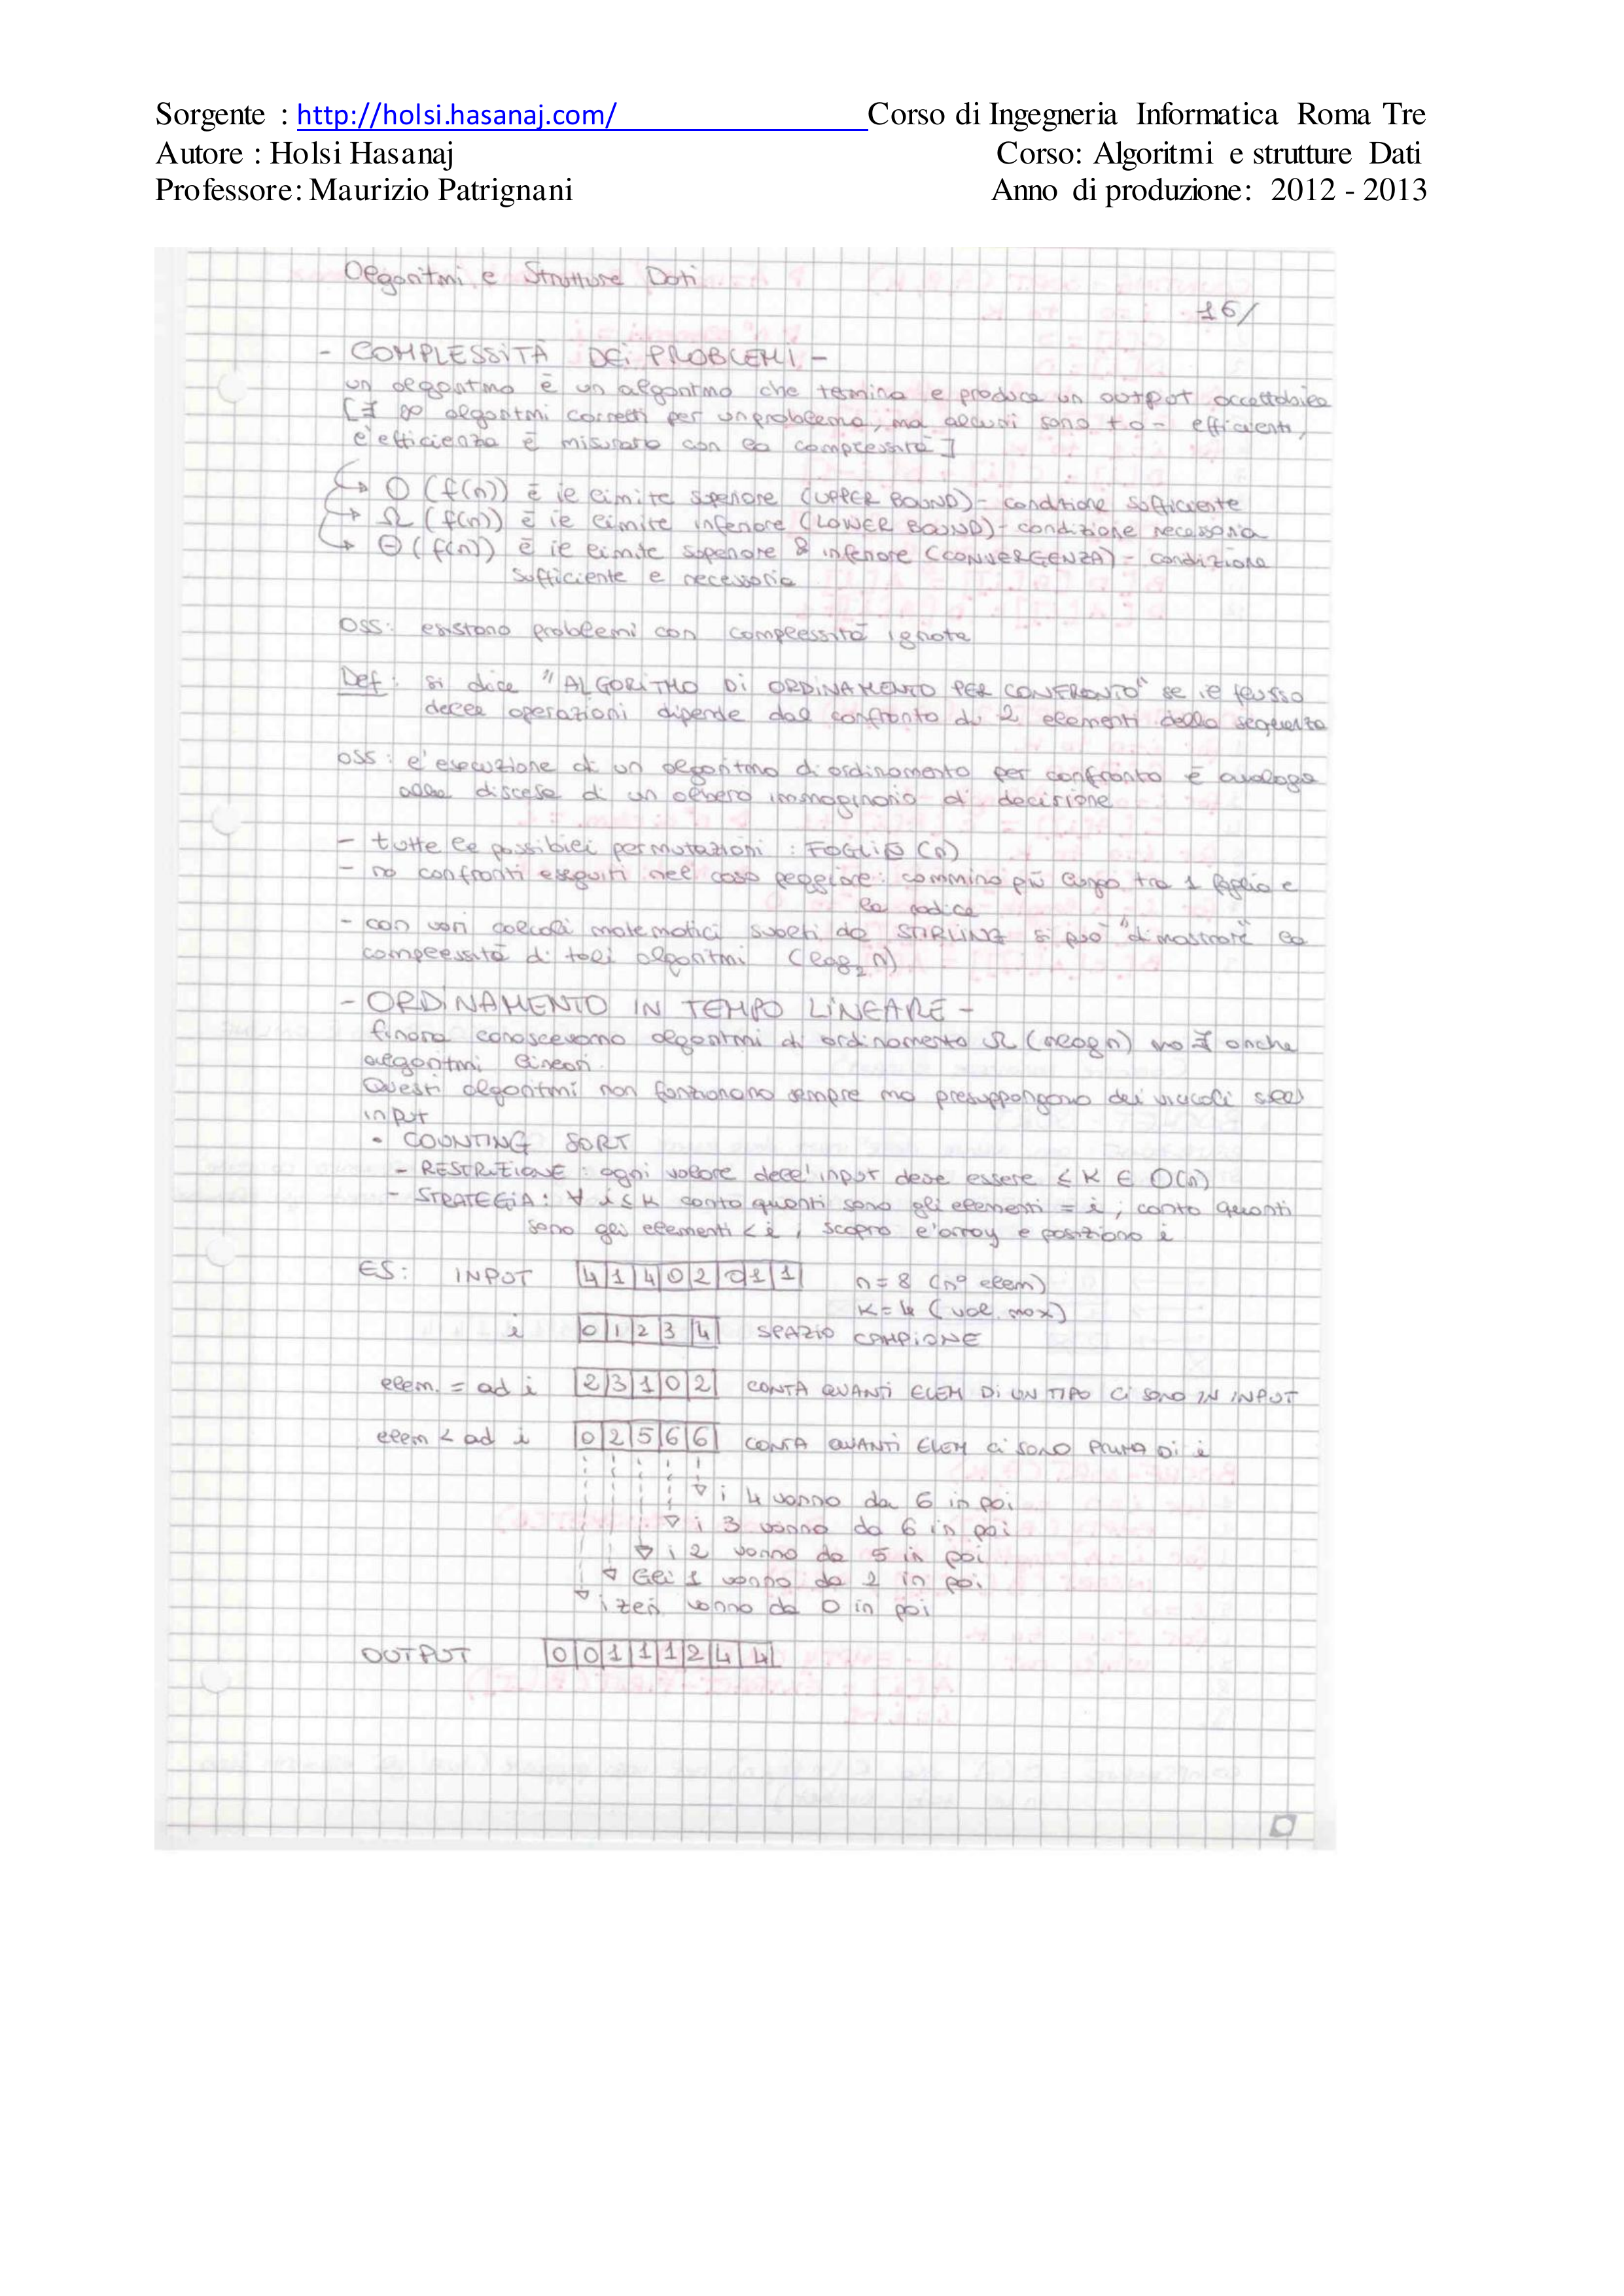 Sorgente : http://holsi.hasanaj.com/ Corso di Ingegneria Informatica Roma Tre
Autore : Holsi Hasanaj Corso: Algoritmi e strutture Dati
Professore: Maurizio Patrignani Anno di produzione: 2012 - 2013
Algoritmi e Strutture Dati
16/
- COMPLESSITÀ DEI PROBLEMI -
un algoritmo è un algoritmo che termina e produce un output accettabile
[∃ ∞ algoritmi corretti per un problema, ma alcuni sono + o - efficienti,
l'efficienza è misurata con la complessità]
↳ O (f(n)) è il limite superiore (UPPER BOUND) - condizione sufficiente
↳ Ω (f(n)) è il limite inferiore (LOWER BOUND) - condizione necessaria
↳ Θ (f(n)) è il limite superiore & inferiore (CONVERGENZA) - condizione
sufficiente e necessaria
OSS: esistono problemi con complessità ignota
Def: si dice "ALGORITMO DI ORDINAMENTO PER CONFRONTO" se il flusso
delle operazioni dipende dal confronto di 2 elementi della sequenza
OSS: l'esecuzione di un algoritmo di ordinamento per confronto è analoga
alla discesa di un albero immaginario di decisione
- tutte le possibili permutazioni : FOGLIE (n)
- no confronti eseguiti nel caso peggiore: cammino più lungo tra 1 foglia e
la radice
- con vari calcoli matematici svolti da STIRLING si può "dimostrare" la
complessità di tali algoritmi (log₂ n)
- ORDINAMENTO IN TEMPO LINEARE -
finora conoscevamo algoritmi di ordinamento Ω (nlogn) ma ∃ anche
algoritmi lineari.
Questi algoritmi non funzionano sempre ma presuppongono dei vincoli sull'
input
• COUNTING SORT
- RESTRIZIONE : ogni valore dell'input deve essere ≤ K ∈ O(n)
- STRATEGIA: ∀ i ≤ K conto quanti sono gli elementi = i ; conto quanti
sono gli elementi < i , scopro l'array e posiziono i
ES: INPUT 4|1|4|0|2|0|1|1 n = 8 (n° elem)
K = 4 (val. max)
i 0|1|2|3|4 SPAZIO CAMPIONE
elem. = ad i 2|3|1|0|2 CONTA QUANTI ELEM DI UN TIPO CI SONO IN INPUT
elem < ad i 0|2|5|6|6 CONTA QUANTI ELEM CI SONO PRIMA DI i
i 4 vanno da 6 in poi
i 3 vanno da 6 in poi
i 2 vanno da 5 in poi
Gli 1 vanno da 2 in poi
i zeri vanno da 0 in poi
OUTPUT 0|0|1|1|1|2|4|4